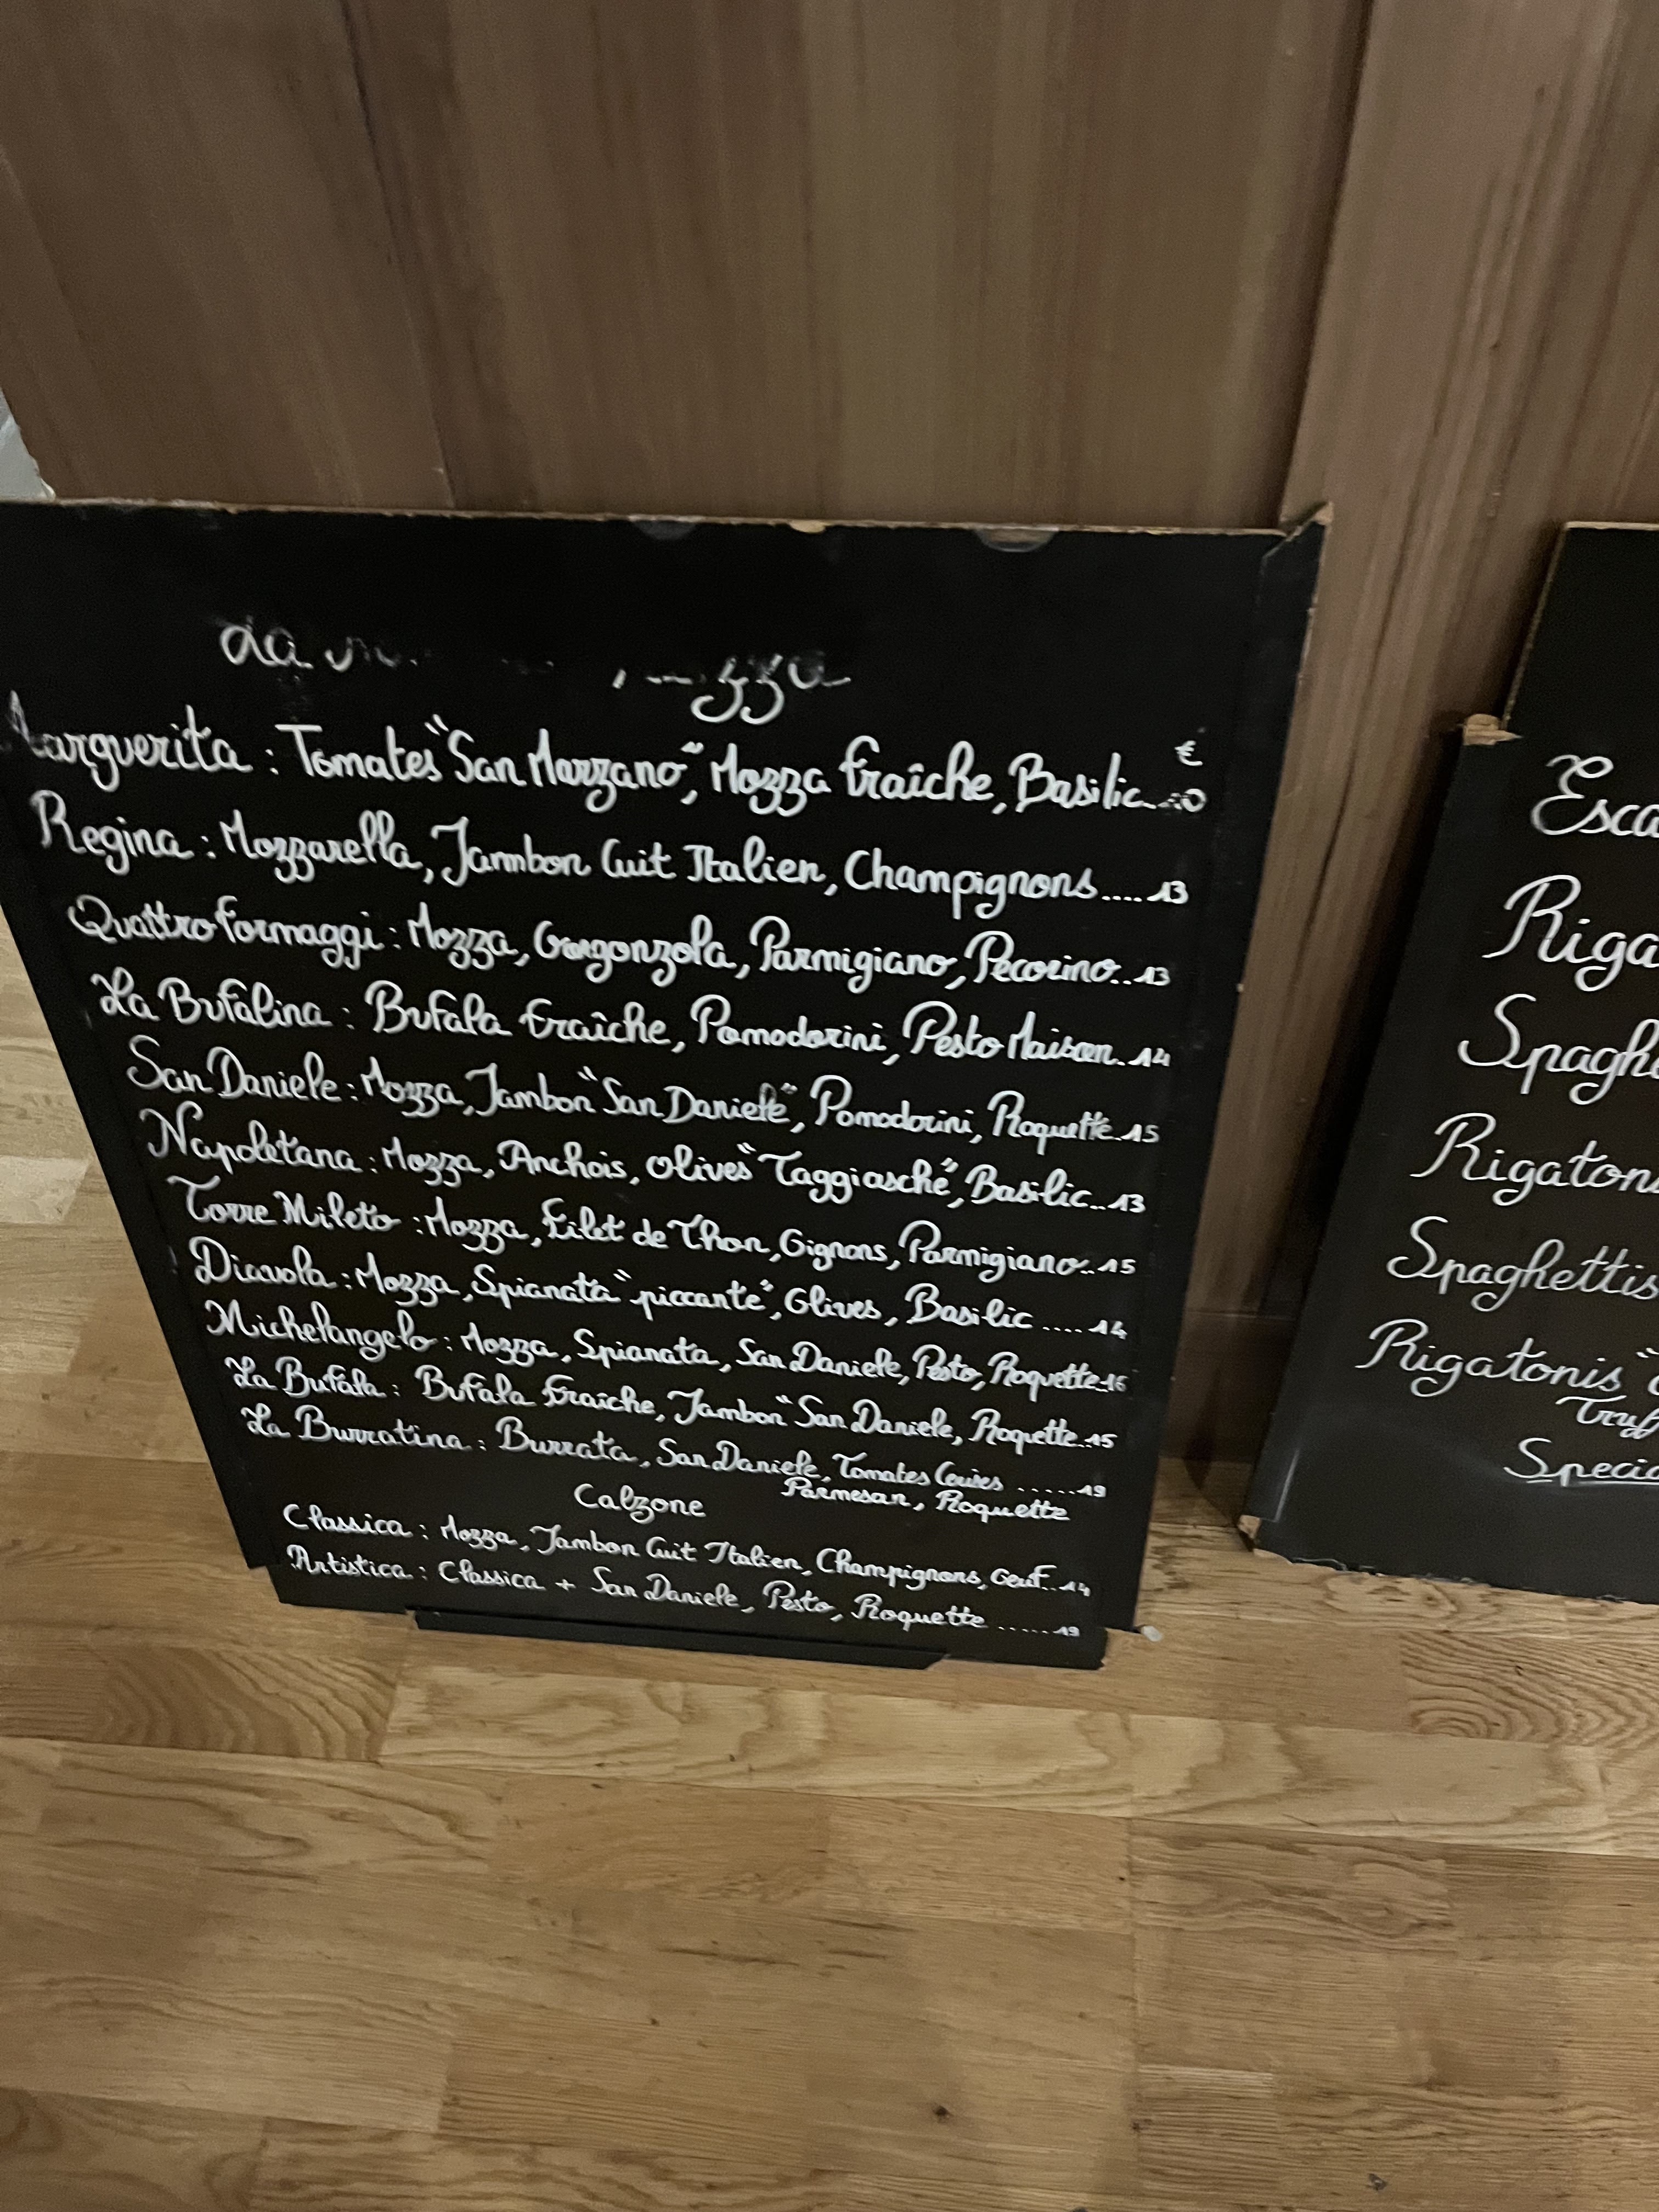 Marguerita : Tomates "San Marzano", Mozza fraîche, Basilic
€
Regina : Mozzarella, Jambon Cuit Italien, Champignons....13
Quattro formaggi : Mozza, Gorgonzola, Parmigiano, Pecorino..13
La Bufalina : Bufala fraîche, Pomodorini, Pesto Maison..14
San Daniele : Mozza, Jambon "San Daniele", Pomodorini, Roquette.15
Napoletana : Mozza, Anchois, Olives "Taggiasche", Basilic..13
Torre Mileto : Mozza, Filet de Thon, Oignons, Parmigiano..15
Diavola : Mozza, Spianata "piccante", Olives, Basilic ....14
Michelangelo : Mozza, Spianata, San Daniele, Pesto, Roquette..16
La Bufala : Bufala fraîche, Jambon "San Daniele, Roquette..15
La Burratina : Burrata, San Daniele, Tomates Cerises .....19
Parmesan, Roquette
Calzone
Classica : Mozza, Jambon Cuit Italien, Champignons, Oeuf..14
Artistica : Classica + San Daniele, Pesto, Roquette .....19
Esca
Riga
Spaghe
Rigatoni
Spaghettis
Rigatonis "
Truf
Specia